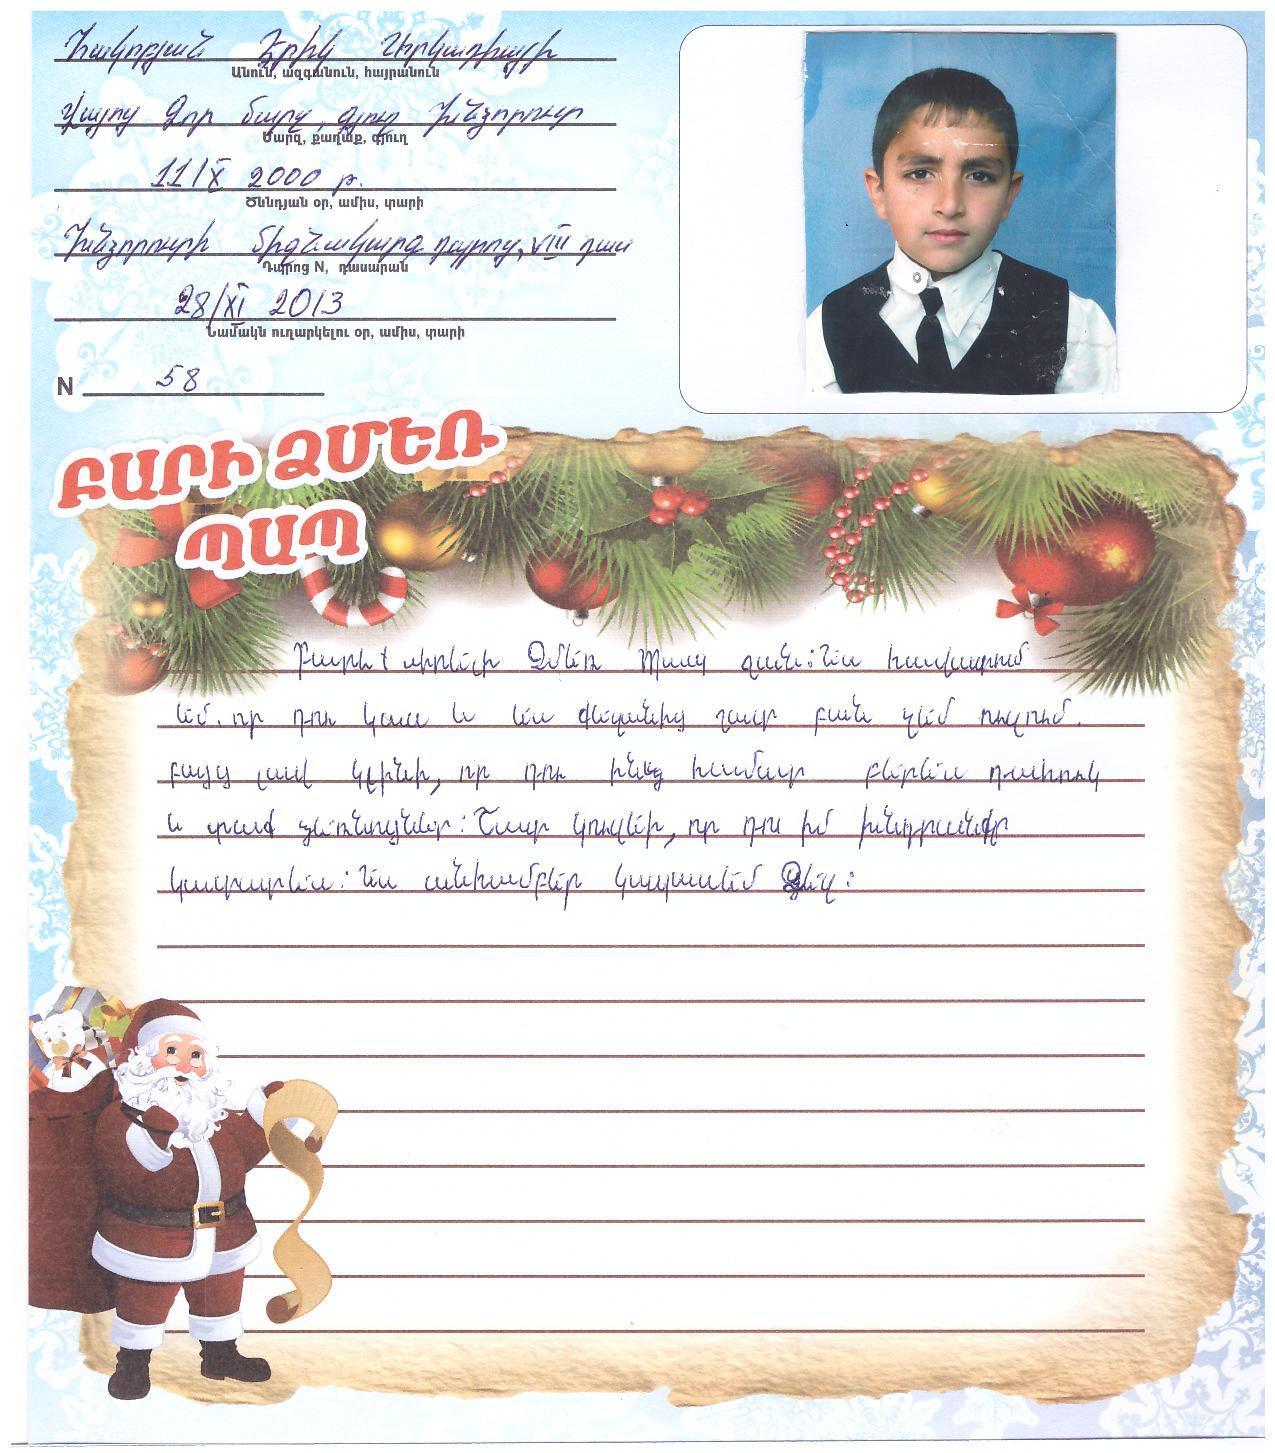 Հակոբյան Էրիկ Արկադիայի
Անուն, ազգանուն, հայրանուն
Վայոց Ձոր մարզ, գյուղ Խնձորուտ
Մարզ, քաղաք, գյուղ
11/X 2000 թ.
Ծննդյան օր, ամիս, տարի
Խնձորուտի միջնակարգ դպրոց, VIII դաս
Դպրոց N, դասարան
28/XI 2013
Նամակն ուղարկելու օր, ամիս, տարի
N 58
ԲԱՐԻ ՁՄԵՌ
ՊԱՊ
Բարև սիրելի Ձմեռ պապ ջան: Ես հավատում
եմ, որ դու կաս և ես քեզանից շատ բան չեմ ուզում.
բայց լավ կլինի, որ դու ինձ համար բերես դահուկ
և տաք ձեռնոցներ: Շատ կուզեի, որ դու իմ խնդրանքը
կատարես: Ես անհամբեր կսպասեմ Ձեզ: